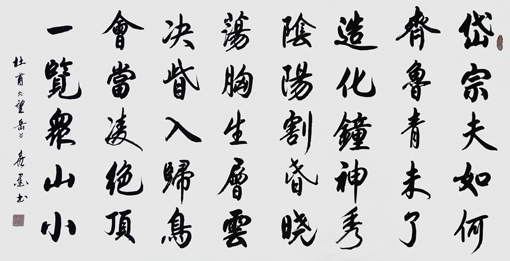 岱宗夫如何
齊魯青未了
造化鐘神秀
陰陽割昏曉
蕩胸生層雲
决眥入歸鳥
會當凌絕頂
一覽衆山小
杜甫望岳